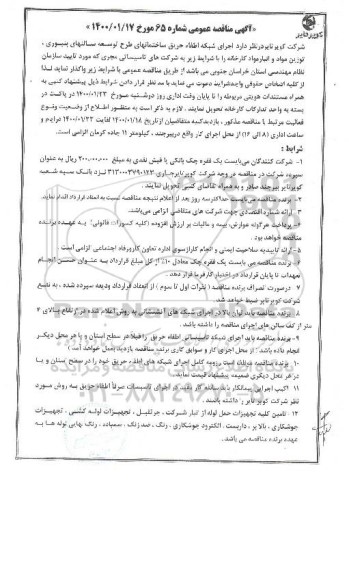 کویر تایر
«آگهی مناقصه عمومی شماره ۶۵ مورخ ۱۴۰۰/۰۱/۱۷»
شرکت کویرتایر در نظر دارد اجرای شبکه اطفاء حریق ساختمانهای طرح توسعه سالنهای پنبوری،
توزین مواد و انبار مواد کارخانه را با شرایط زیر به شرکت های تاسیساتی مجری که مورد تایید سازمان
نظام مهندسی استان خراسان جنوبی می باشد از طریق مناقصه عمومی با شرایط زیر واگذار نماید. لذا
از کلیه اشخاص حقوقی واجد شرایط دعوت می نماید با مد نظر قرار دادن شرایط ذیل پیشنهاد کتبی به
همراه مستندات هویتی مربوطه را تا پایان وقت اداری روز دوشنبه مورخ ۱۴۰۰/۰۱/۲۳ در پاکت در
بسته به واحد تدارکات کارخانه تحویل نمایند. لازم به ذکر است به منظور اطلاع از وضعیت و نوع
فعالیت مرتبط با مناقصه مذکور، بازدید کلیه متقاضیان از تاریخ ۱۴۰۰/۰۱/۱۸ لغایت ۱۴۰۰/۰۱/۲۳ و
ساعت اداری (۸ الی ۱۶) از محل اجرای کار واقع در بیرجند، کیلومتر ۱۱ جاده کرمان الزامی است.
شرایط:
۱- شرکت کنندگان می بایست یک فقره چک بانکی یا فیش نقدی به مبلغ ۲۰۰/۰۰۰/۰۰۰ ریال به عنوان
سپرده شرکت در مناقصه در وجه شرکت کویرتایر نزد بانک سپه شعبه
کویرتایر بیرجند صادر و به همراه تقاضای کتبی تحویل نمایند.
۲- برنده مناقصه می بایست حداکثر سه روز بعد از اعلام نتیجه مناقصه نسبت به انعقاد قرارداد اقدام نماید.
۳- ارائه شماره اقتصادی جهت شرکت های متقاضی الزامی می باشد.
۴- پرداخت هرگونه عوارض، بیمه و مالیات بر ارزش افزوده (کلیه کسورات قانونی) به عهده برنده
مناقصه خواهد بود.
۵- ارائه تاییدیه صلاحیت ایمنی و انجام کار از سوی اداره تعاون کار و رفاه اجتماعی الزامی است.
۶- برنده مناقصه می بایست یک فقره چک معادل ۱۰٪ از کل مبلغ قرارداد به عنوان حسن انجام
تعهدات تا پایان قرارداد در اختیار کارفرما قرار دهد.
۷- درصورت انصراف برنده مناقصه (نفرات اول تا سوم) از انعقاد قرارداد ودیعه سپرده شده، به نفع
شرکت کویرتایر ضبط خواهد شد.
۸- برنده مناقصه باید توان بالا در اجرای شبکه های آتشنشانی به روش اعلام شده در ارتفاع بالای ۴
متر از کف سالن های اجرای مناقصه را داشته باشد.
۹- برنده مناقصه باید اجرای شبکه تاسیساتی اطفاء حریق را قبلا در سطح استان و یا هر محل دیگر
انجام داده باشد.
۱۰- برنده مناقصه رزومه کامل اجرای شبکه های اطفاء حریق خود را در سطح استان و یا
در هر محل دیگری ضمیمه پیشنهاد قیمت نماید.
۱۱- اکیپ اجرایی پیمانکار باید سابقه کار مفید در اجرای تاسیسات صرفاً اطفاء حریق به روش مورد
نظر شرکت کویرتایر را داشته باشند.
۱۲- تامین کلیه تجهیزات حمل لوله از انبار شرکت، جرثقیل، تجهیزات لوله کشی، تجهیزات
جوشکاری، بالابر، داربست، الکترود جوشکاری، رنگ، ضد زنگ، سمباده، رنگ نهایی لوله ها به
عهده برنده مناقصه می باشد.